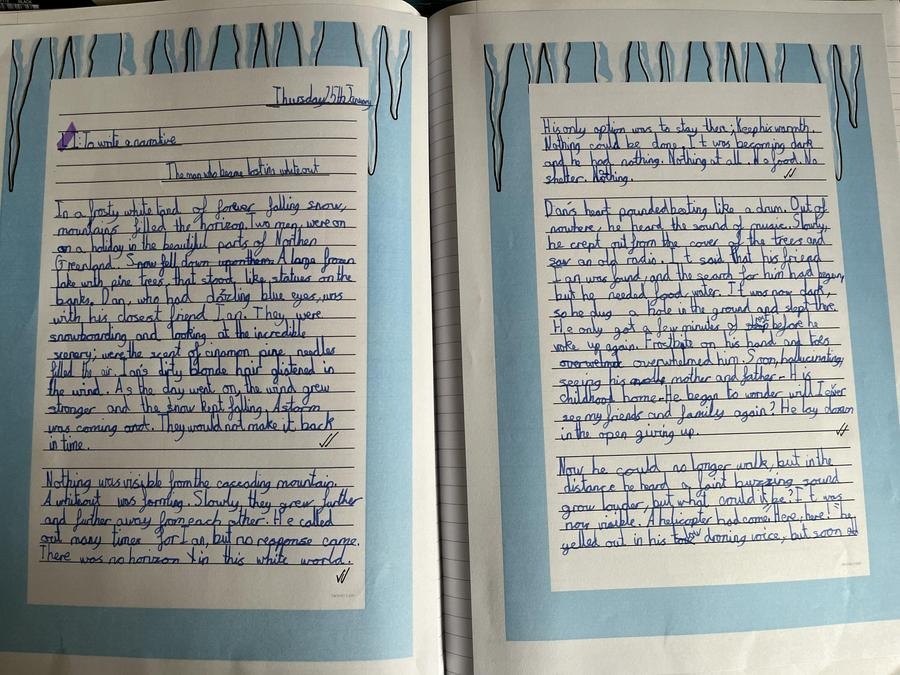 Thursday 25th January
L.I: To write a narrative
The man who became lost in white out
In a frosty white land of forever falling snow,
mountains filled the horizon. Two men were on
on a holiday in the beautiful parts of Northen
Greenland. Snow fell down upon them. A large frozen
lake with pine trees, that stood like statues on the
banks. Dan, who had dazling blue eyes, was
with his closest friend Ian. They were
snowboarding and looking at the incredible
scenery; were the scent of cinamon pine needles
filled the air. Ian's dirty blonde hair glistened in
the wind. As the day went on the wind grew
stronger and the snow kept falling. A storm
was coming and. They would not make it back
in time.
Nothing was visible from the cascading mountain.
A whiteout was forming. Slowly they grew further
and further away from each other. He called
out many times for Ian, but no response came.
There was no horizon in this white world.
His only option was to stay then; Keep his warmth.
Nothing could be done. It was becoming dark
and he had nothing. Nothing at all. No food. No
shelter. Nothing.
Dan's heart pounded beating like a drum. Out of
nowhere, he heard the sound of music. Slowly,
he crept out from the cover of the trees and
saw an old radio. It said that his friend
Ian was found, and the search for him had began,
but he needed food, water. It was now dark,
so he dug a hole in the ground and slept there.
He only got a few minutes of rest before he
woke up again. Frostbite on his hand and toes
overwhelmed him. Soon, hallucinating
seeing his mother and father - His
childhood home - He began to wonder will I ever
see my friends and family again? He lay down
in the open giving up.
Now he could no longer walk, but in the
distance he heard a faint buzzing sound
grow louder, but what could it be? It was
now visible. A helicopter had come. "Here, here!" he
yelled out in his low droning voice, but soon all